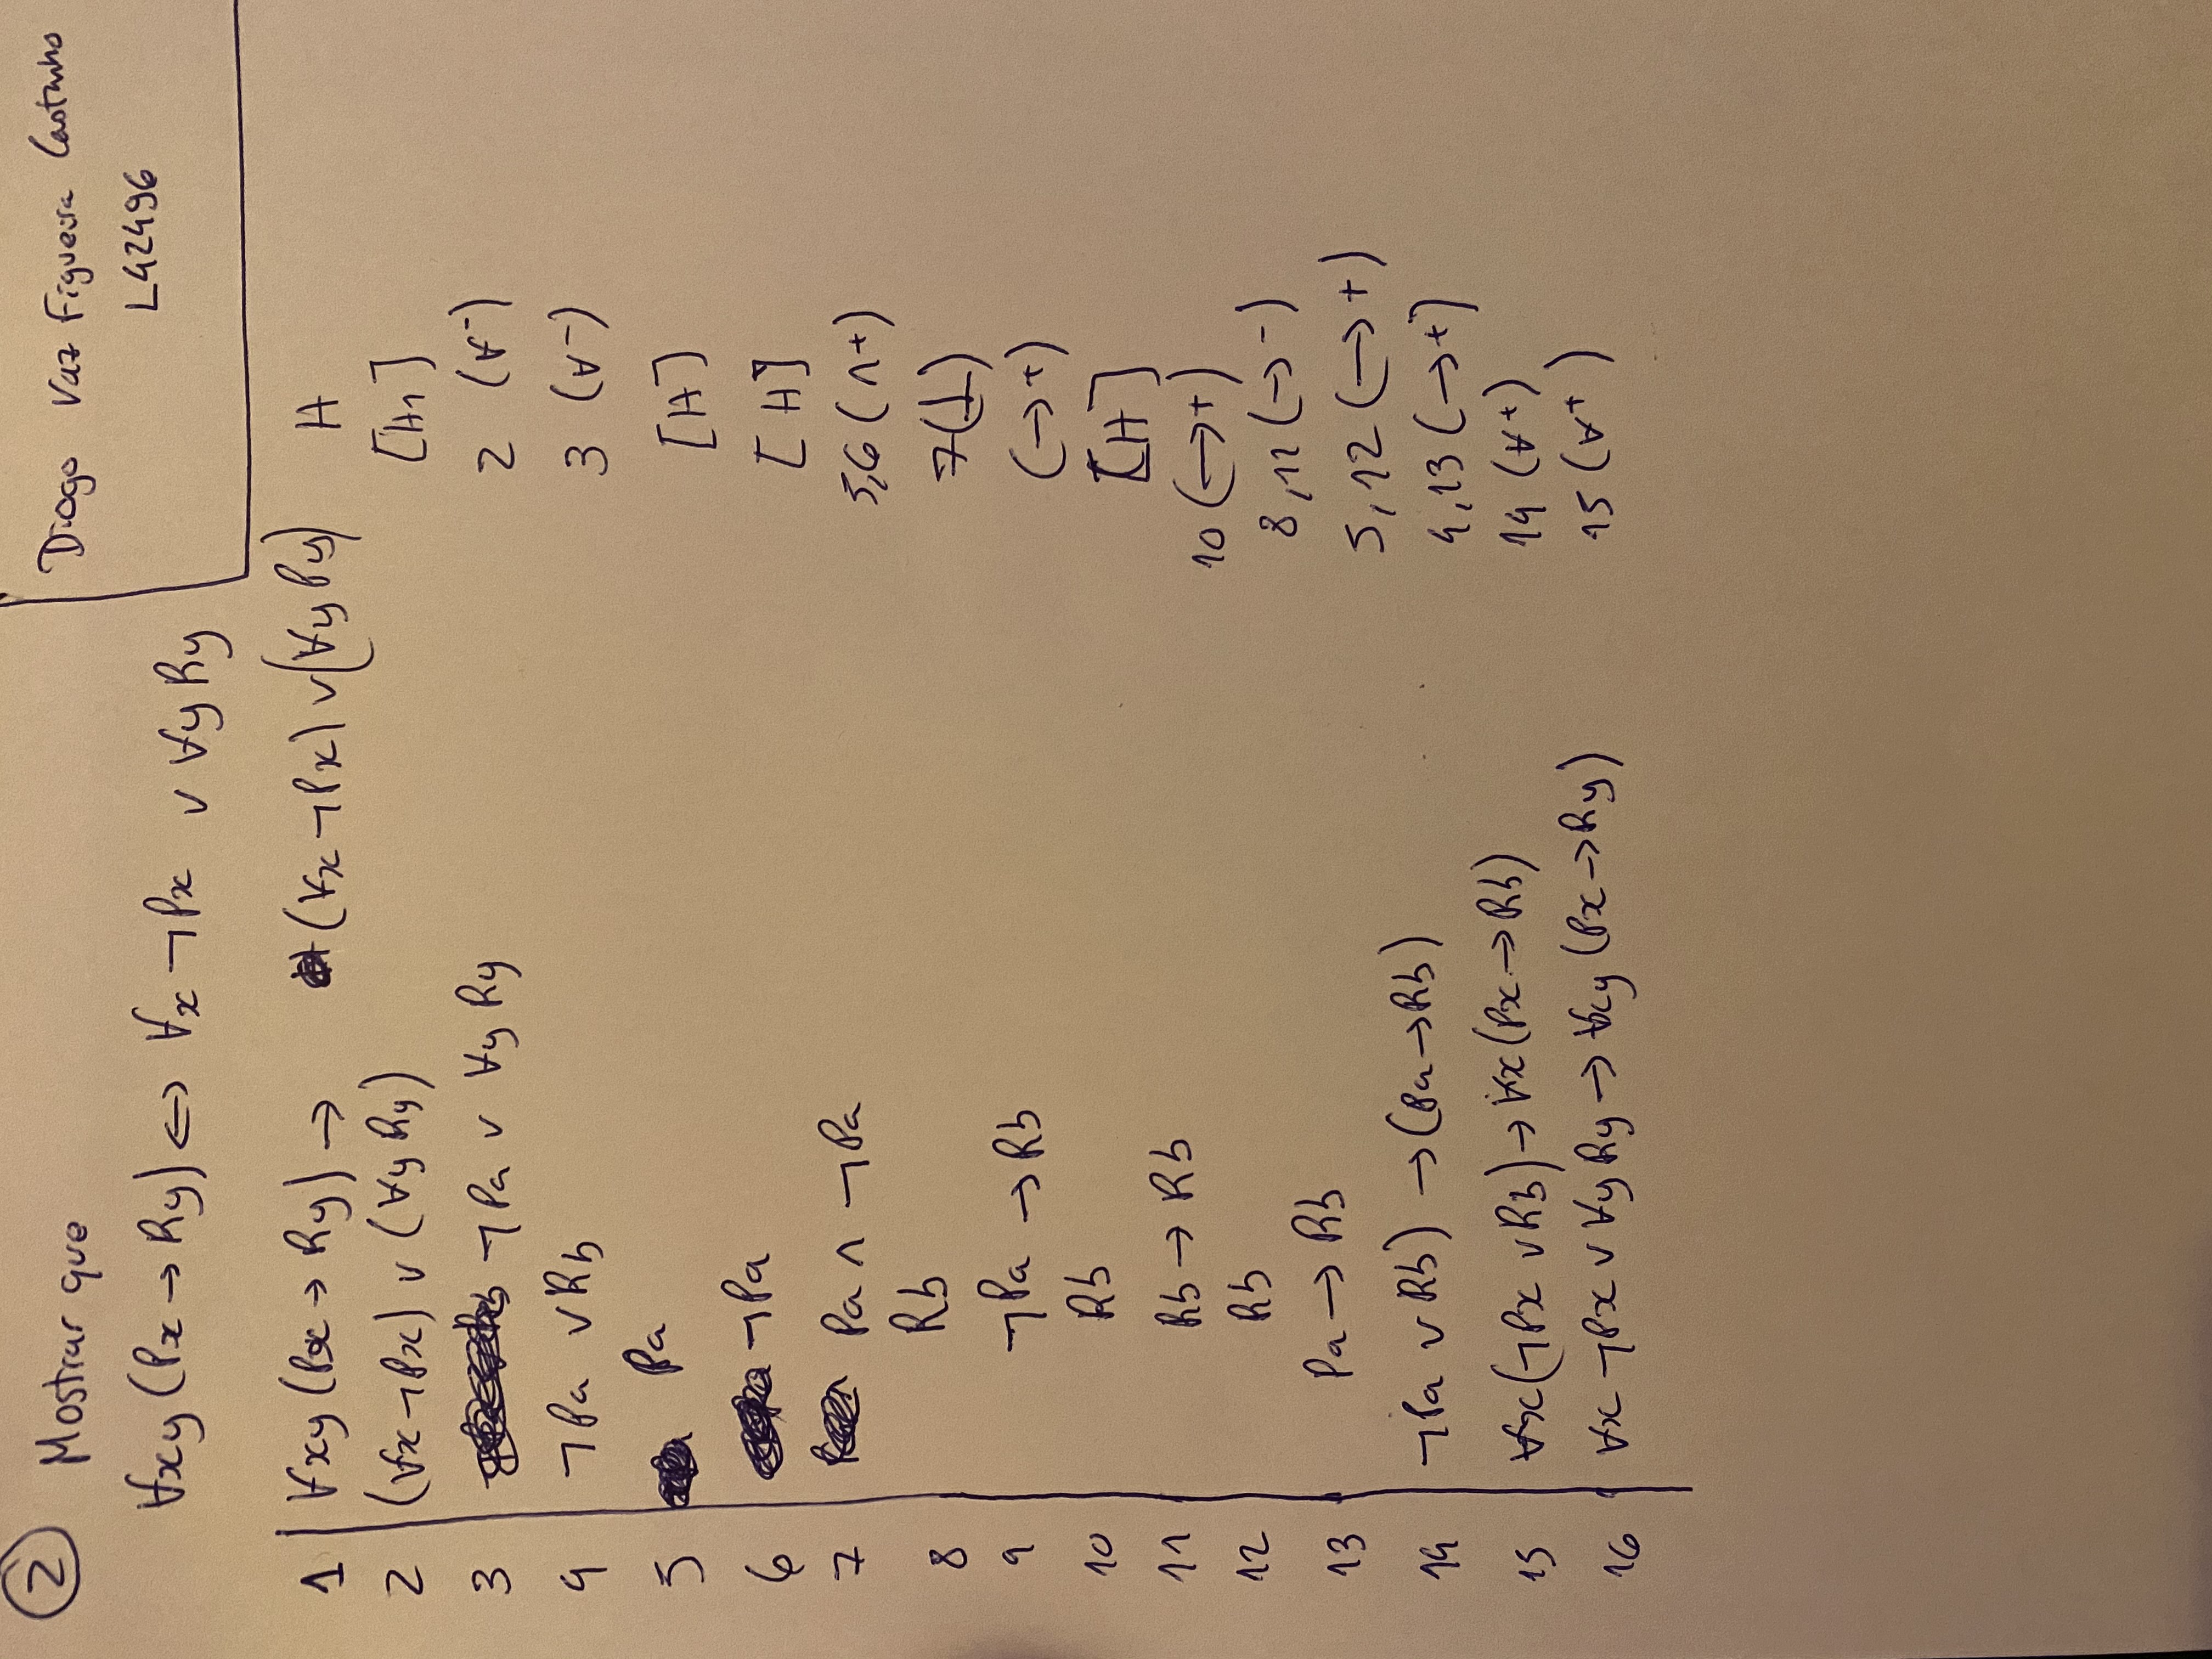 ② Mostrar que
Diogo Vaz Figueira Castanho
L42496
∀xy (Px → Ry) ⇔ ∀x ¬Px ∨ ∀y Ry
1 ∀xy (Px → Ry) → (∀x ¬Px) ∨ (∀y Py) H
2 (∀x ¬Px) ∨ (∀y Ry) [H1]
3 ¬Pa ∨ ∀y Ry 2 (∀-)
4 ¬Pa ∨ Rb 3 (∀-)
5 Pa [H]
6 ¬Pa [H]
7 Pa ∧ ¬Pa 5,6 (∧+)
8 Rb 7(⊥)
9 ¬Pa → Rb (→+)
10 Rb [H]
11 Rb → Rb 10 (→+)
12 Rb 8,11 (→-)
13 Pa → Rb 5,12 (→+)
14 ¬Pa ∨ Rb) → (Pa → Rb) 4,13 (→+)
15 ∀x(¬Px ∨ Rb) → ∀x(Px → Rb) 14 (∀+)
16 ∀x ¬Px ∨ ∀y Ry → ∀xy (Px → Ry) 15 (∀+)